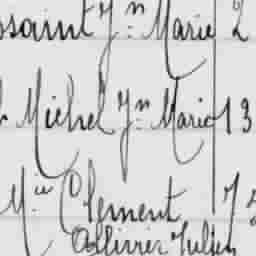 ssaint Jn Marie 2
Michel Jn Marie 13
Mie Clement 7
Ollivier Julien